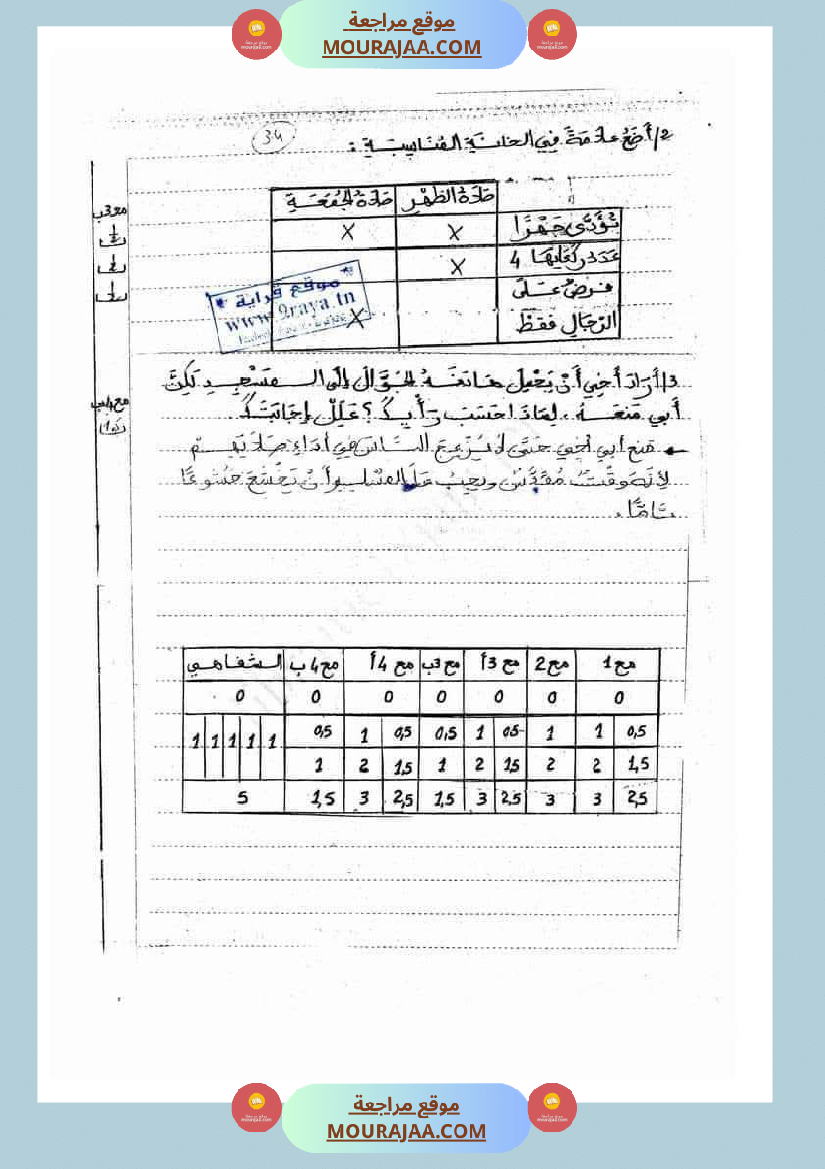 موقع مراجعة
MOURAJAA.COM
34
2/ أَضَعُ علامَةً فِي الخانَةِ المُنَاسِبَةِ :
صَلاَةُ الظُّهْرِ صَلاَةُ الجُمُعَةِ
تُؤَدَّى جَهْرًا X X
عَدَدُ رَكَعَاتِهَا 4 X
فَرْضٌ عَلَى
الرِّجَالِ فَقَطْ X
مع3ب
موقع قراية
www.9raya.tn
3/ أَرَادَ أَخِي أَنْ يَحْمِلَ هَاتِفَهُ الجَوَّالَ إِلَى المَسْجِدِ لَكِنَّ
أَبِي مَنَعَهُ. لِمَاذَا حَسَبَ رَأْيِكَ؟ عَلِّلْ إِجَابَتَكَ
مع4ب
منع أبي أخي حتَّى لا يُزْعِجَ النَّاسَ في أداءِ صلاَتِهِم
لِأَنَّهُ وقْتٌ مُقَدَّسٌ ويجِبُ علَى المُسْلِمِ أَنْ يَخْشَعَ خُشُوعًا
تَامًّا.
مع1 مع2 مع3أ مع3ب مع4أ مع4ب الشفاهي
0 0 0 0 0 0 0
0,5 1 1 0,5 1 0,5 0,5 1 0,5 1 1 1 1 1
1,5 2 2 1,5 2 1 1,5 2 1
2,5 3 3 2,5 3 1,5 2,5 3 1,5 5
موقع مراجعة
MOURAJAA.COM